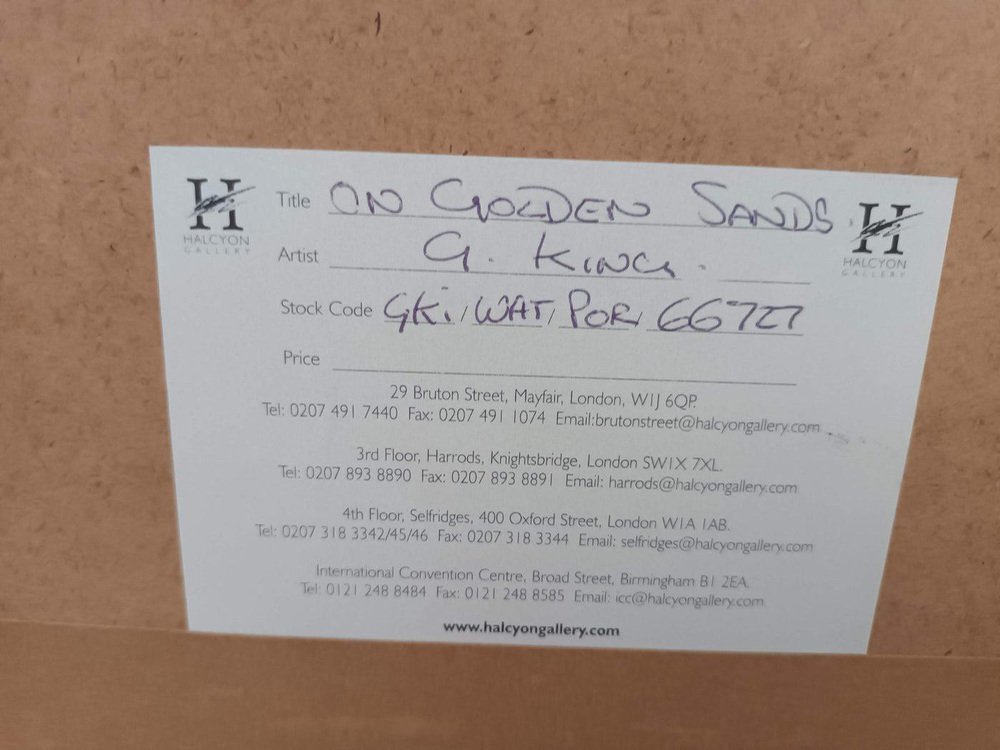 H HALCYON GALLERY
Title ON GOLDEN SANDS.
H HALCYON GALLERY
Artist G. KING.
Stock Code GKi/WAT/POR/66727
Price
29 Bruton Street, Mayfair, London, W1J 6QP.
Tel: 0207 491 7440 Fax: 0207 491 1074 Email:brutonstreet@halcyongallery.com
3rd Floor, Harrods, Knightsbridge, London SW1X 7XL.
Tel: 0207 893 8890 Fax: 0207 893 8891 Email: harrods@halcyongallery.com
4th Floor, Selfridges, 400 Oxford Street, London W1A 1AB.
Tel: 0207 318 3342/45/46 Fax: 0207 318 3344 Email: selfridges@halcyongallery.com
International Convention Centre, Broad Street, Birmingham B1 2EA.
Tel: 0121 248 8484 Fax: 0121 248 8585 Email: icc@halcyongallery.com
www.halcyongallery.com